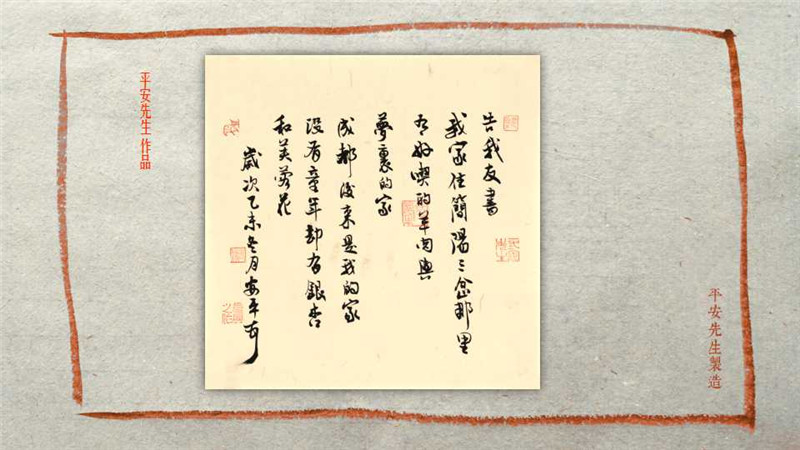 告我友書
我家住簡陽三岔那里
有好喫的羊肉與
夢裏的家
成都後來是我的家
沒有童年卻有銀杏
和芙蓉花
歲次乙未冬月安平
平安先生作品
平安先生製造